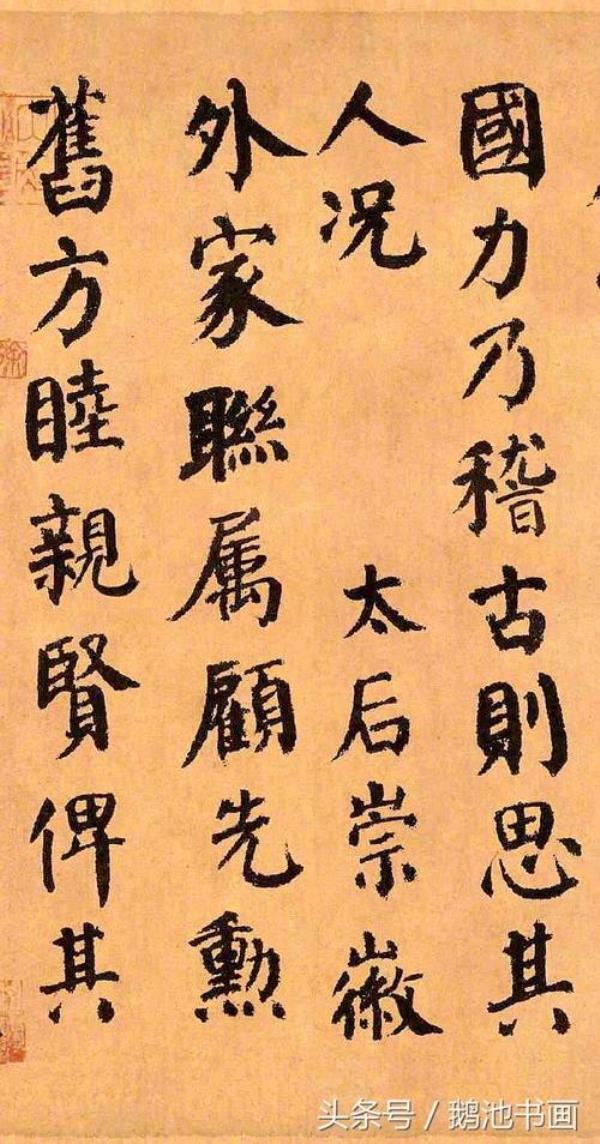 國力乃稽古則思其
人况 太后崇徽
外家聯属顧先勲
舊方睦親賢俾其
头条号 / 鹅池书画